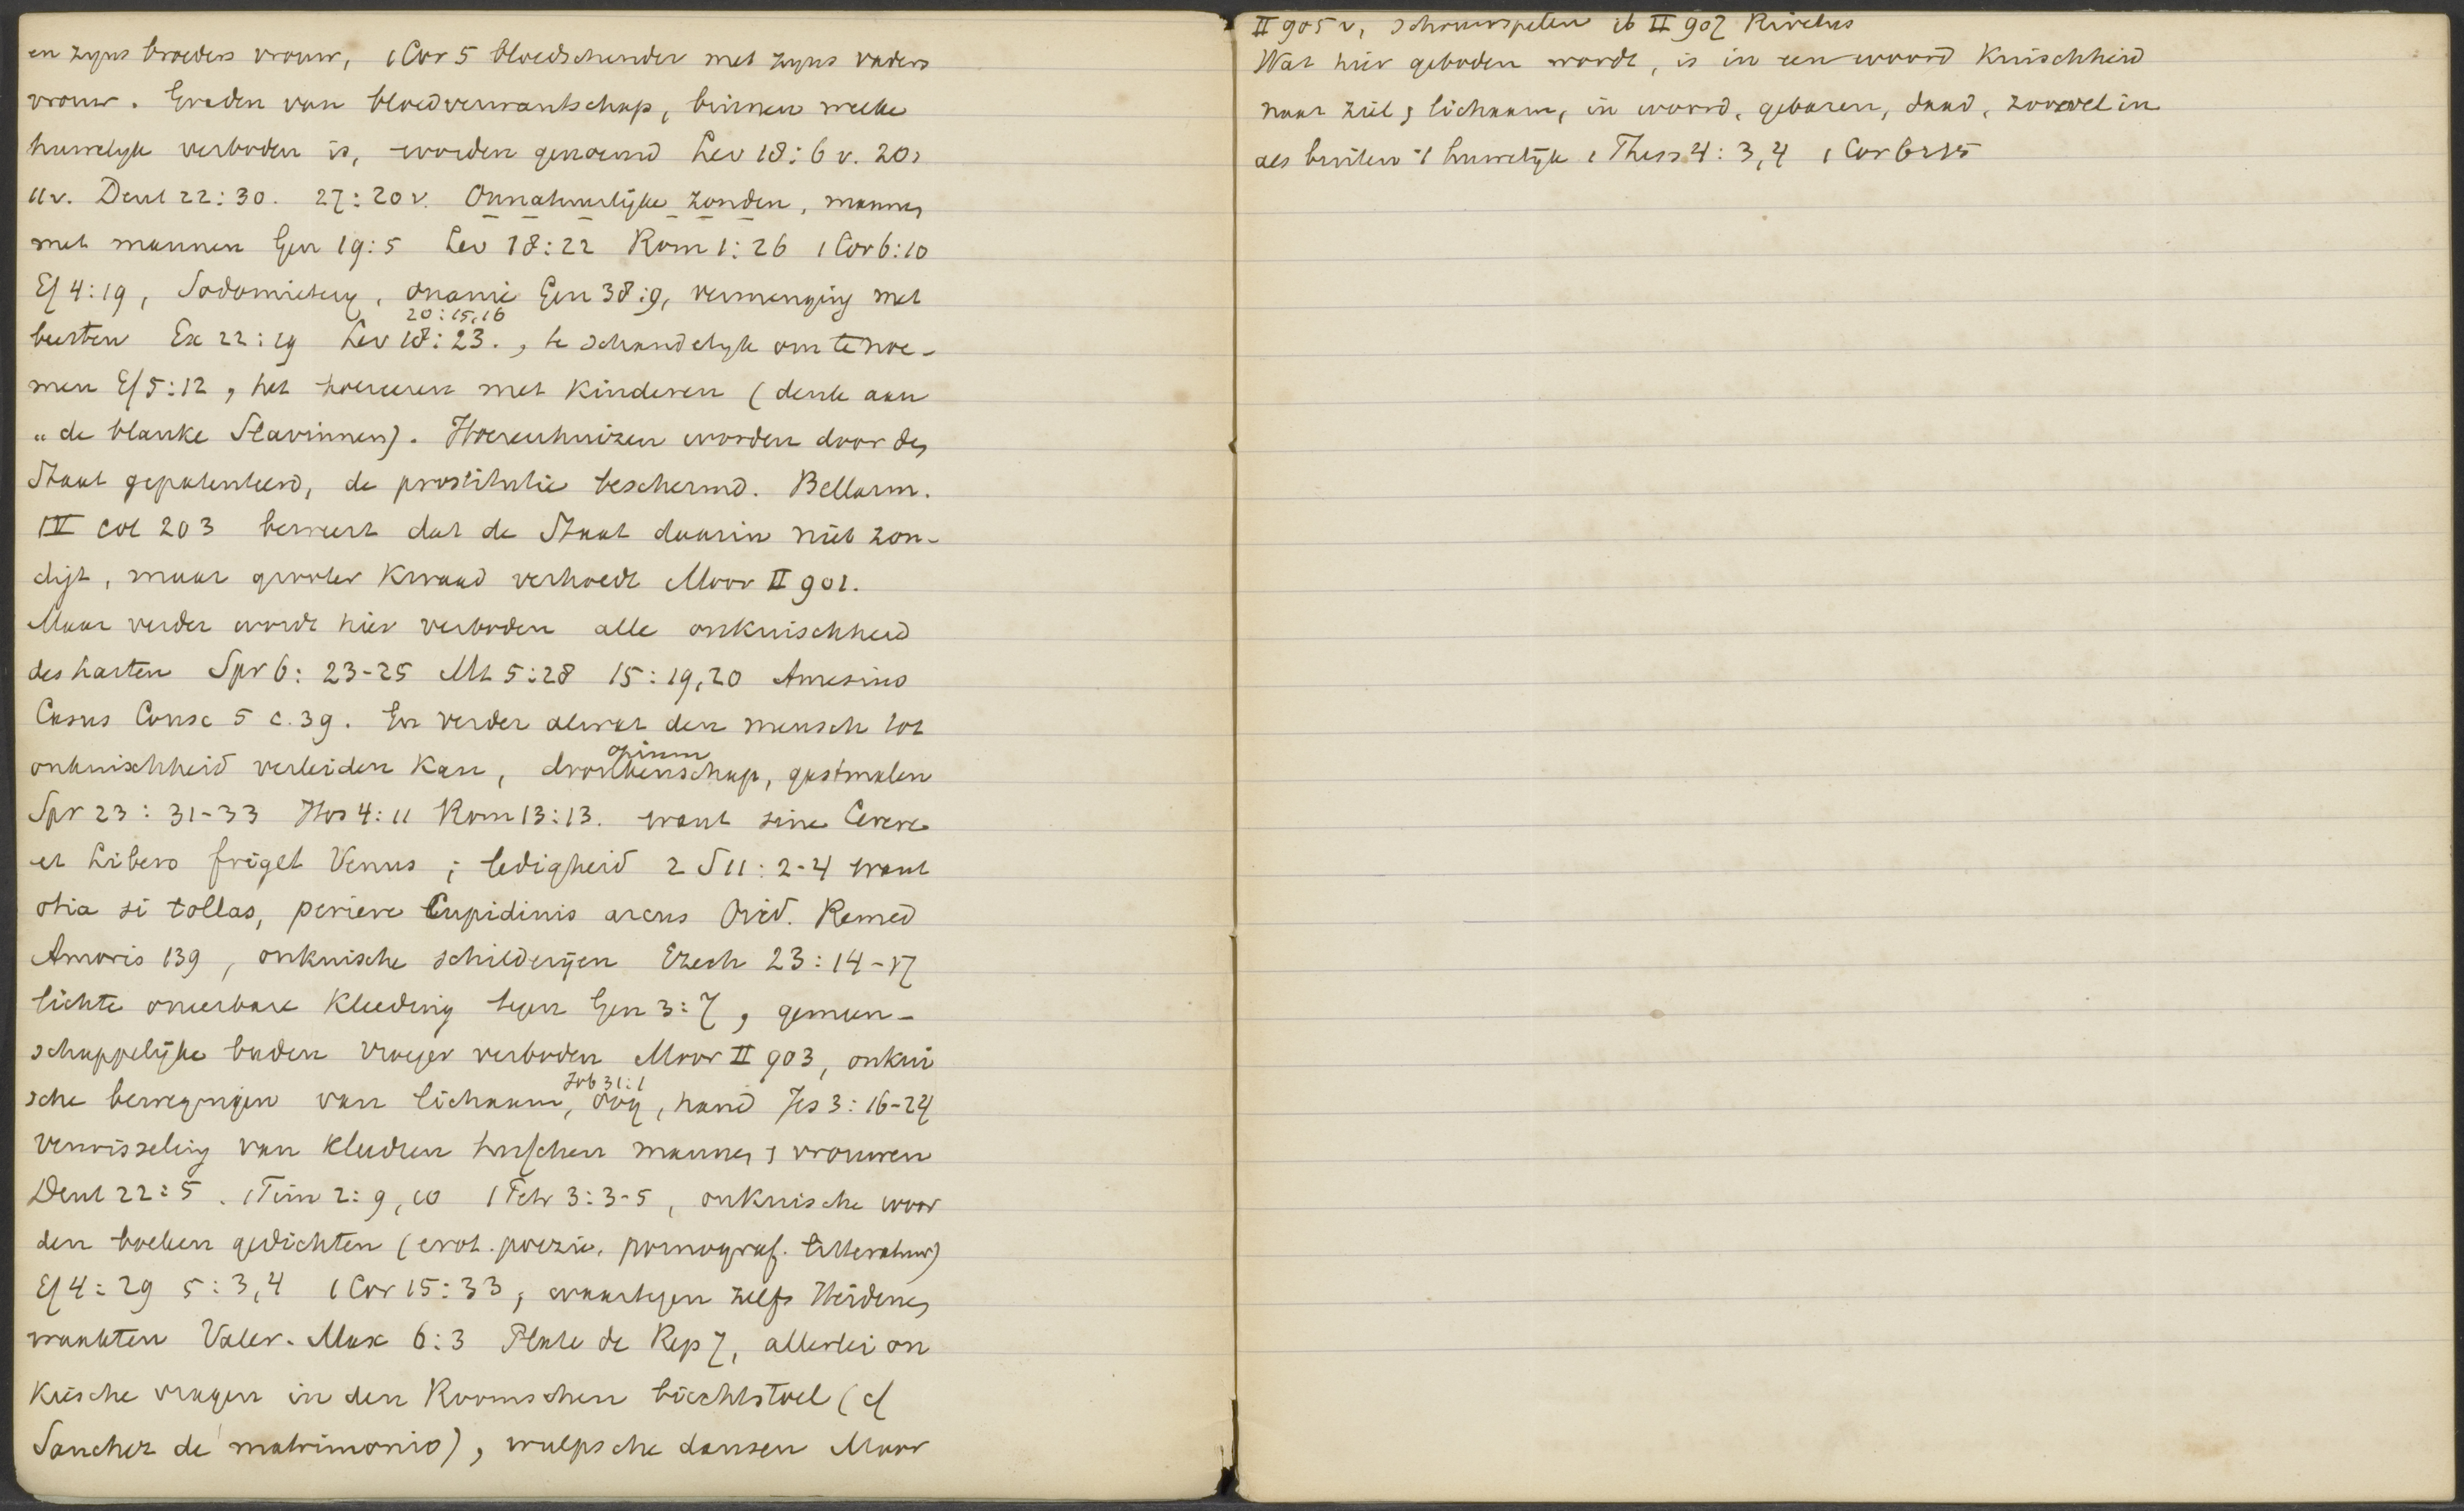 en zyns broeders vrouw, 1 Cor 5 bloedschender met zyns vaders
vrouw. Graden van bloedverwantschap, binnen welke
huwelyk verboden is, worden genoemd Lev 18:6 v. 20:
11 v. Deut 22:30. 27:20 v. Onnatuurlijke zonden, mannen
met mannen Gen 19:5 Lev 18:22 Rom 1:26 1 Cor 6:10
Ef 4:19, Sodomietery, onanie Gen 38:9, vermenging met
20:15,16
beesten Ex 22:19 Lev 18:23., te schandelyk om te noe-
men Ef 5:12, het hoereeren met kinderen (denk aan
„de blanke Slavinnen). Hoerenhuizen worden door den
Staat gepatenteerd, de prostitutie beschermd. Bellarm.
IV col 203 beweert dat de Staat daarin niet zon-
digt, maar grooter kwaad verhoedt Moor II 901.
Maar verder wordt hier verboden alle onkuischheid
des harten Spr 6:23-25 Mt 5:28 15:19,20 Amesius
Casus Consc 5 c. 39. En verder alwat den mensch tot
opium
onkuischheid verleiden kan, dronkenschap, gastmalen
Spr 23:31-33 Hos 4:11 Rom 13:13. want sine Cerere
et Libero friget Venus; ledigheid 2 S 11:2-4 want
otia si tollas, periere Cupidinis arcus Ovid. Remed
Amoris 139, onkuische schilderijen Ezech 23:14-17
lichte oneerbare kleeding tegen Gen 3:7, gemeen-
schappelijke baden vroeger verboden Moor II 903, onkui
Job 31:1
sche bewegingen van lichaam, oog, hand Jes 3:16-24
verwisseling van kleedren tusschen mannen & vrouwen
Deut 22:5. 1 Tim 2:9,10 1 Petr 3:3-5, onkuische woor
den boeken gedichten (erot. poezie, pornograf. litteratuur)
Ef 4:29 5:3,4 1 Cor 15:33, waartegen zelfs Heidenen
waakten Valer. Max 6:3 Plato de Rep 7, allerlei on
kuische vragen in den Roomschen biechtstoel (cf
Sanchez de matrimonio), wulpsche dansen Moor
II 905 v, schouwspelen ib II 907 Rivetus
Wat hier geboden wordt, is in een woord Kuischheid
naar ziel & lichaam, in woord, gebaren, daad, zoowel in
als buiten 't huwelijk 1 Thess 4:3,4 1 Cor 6:15